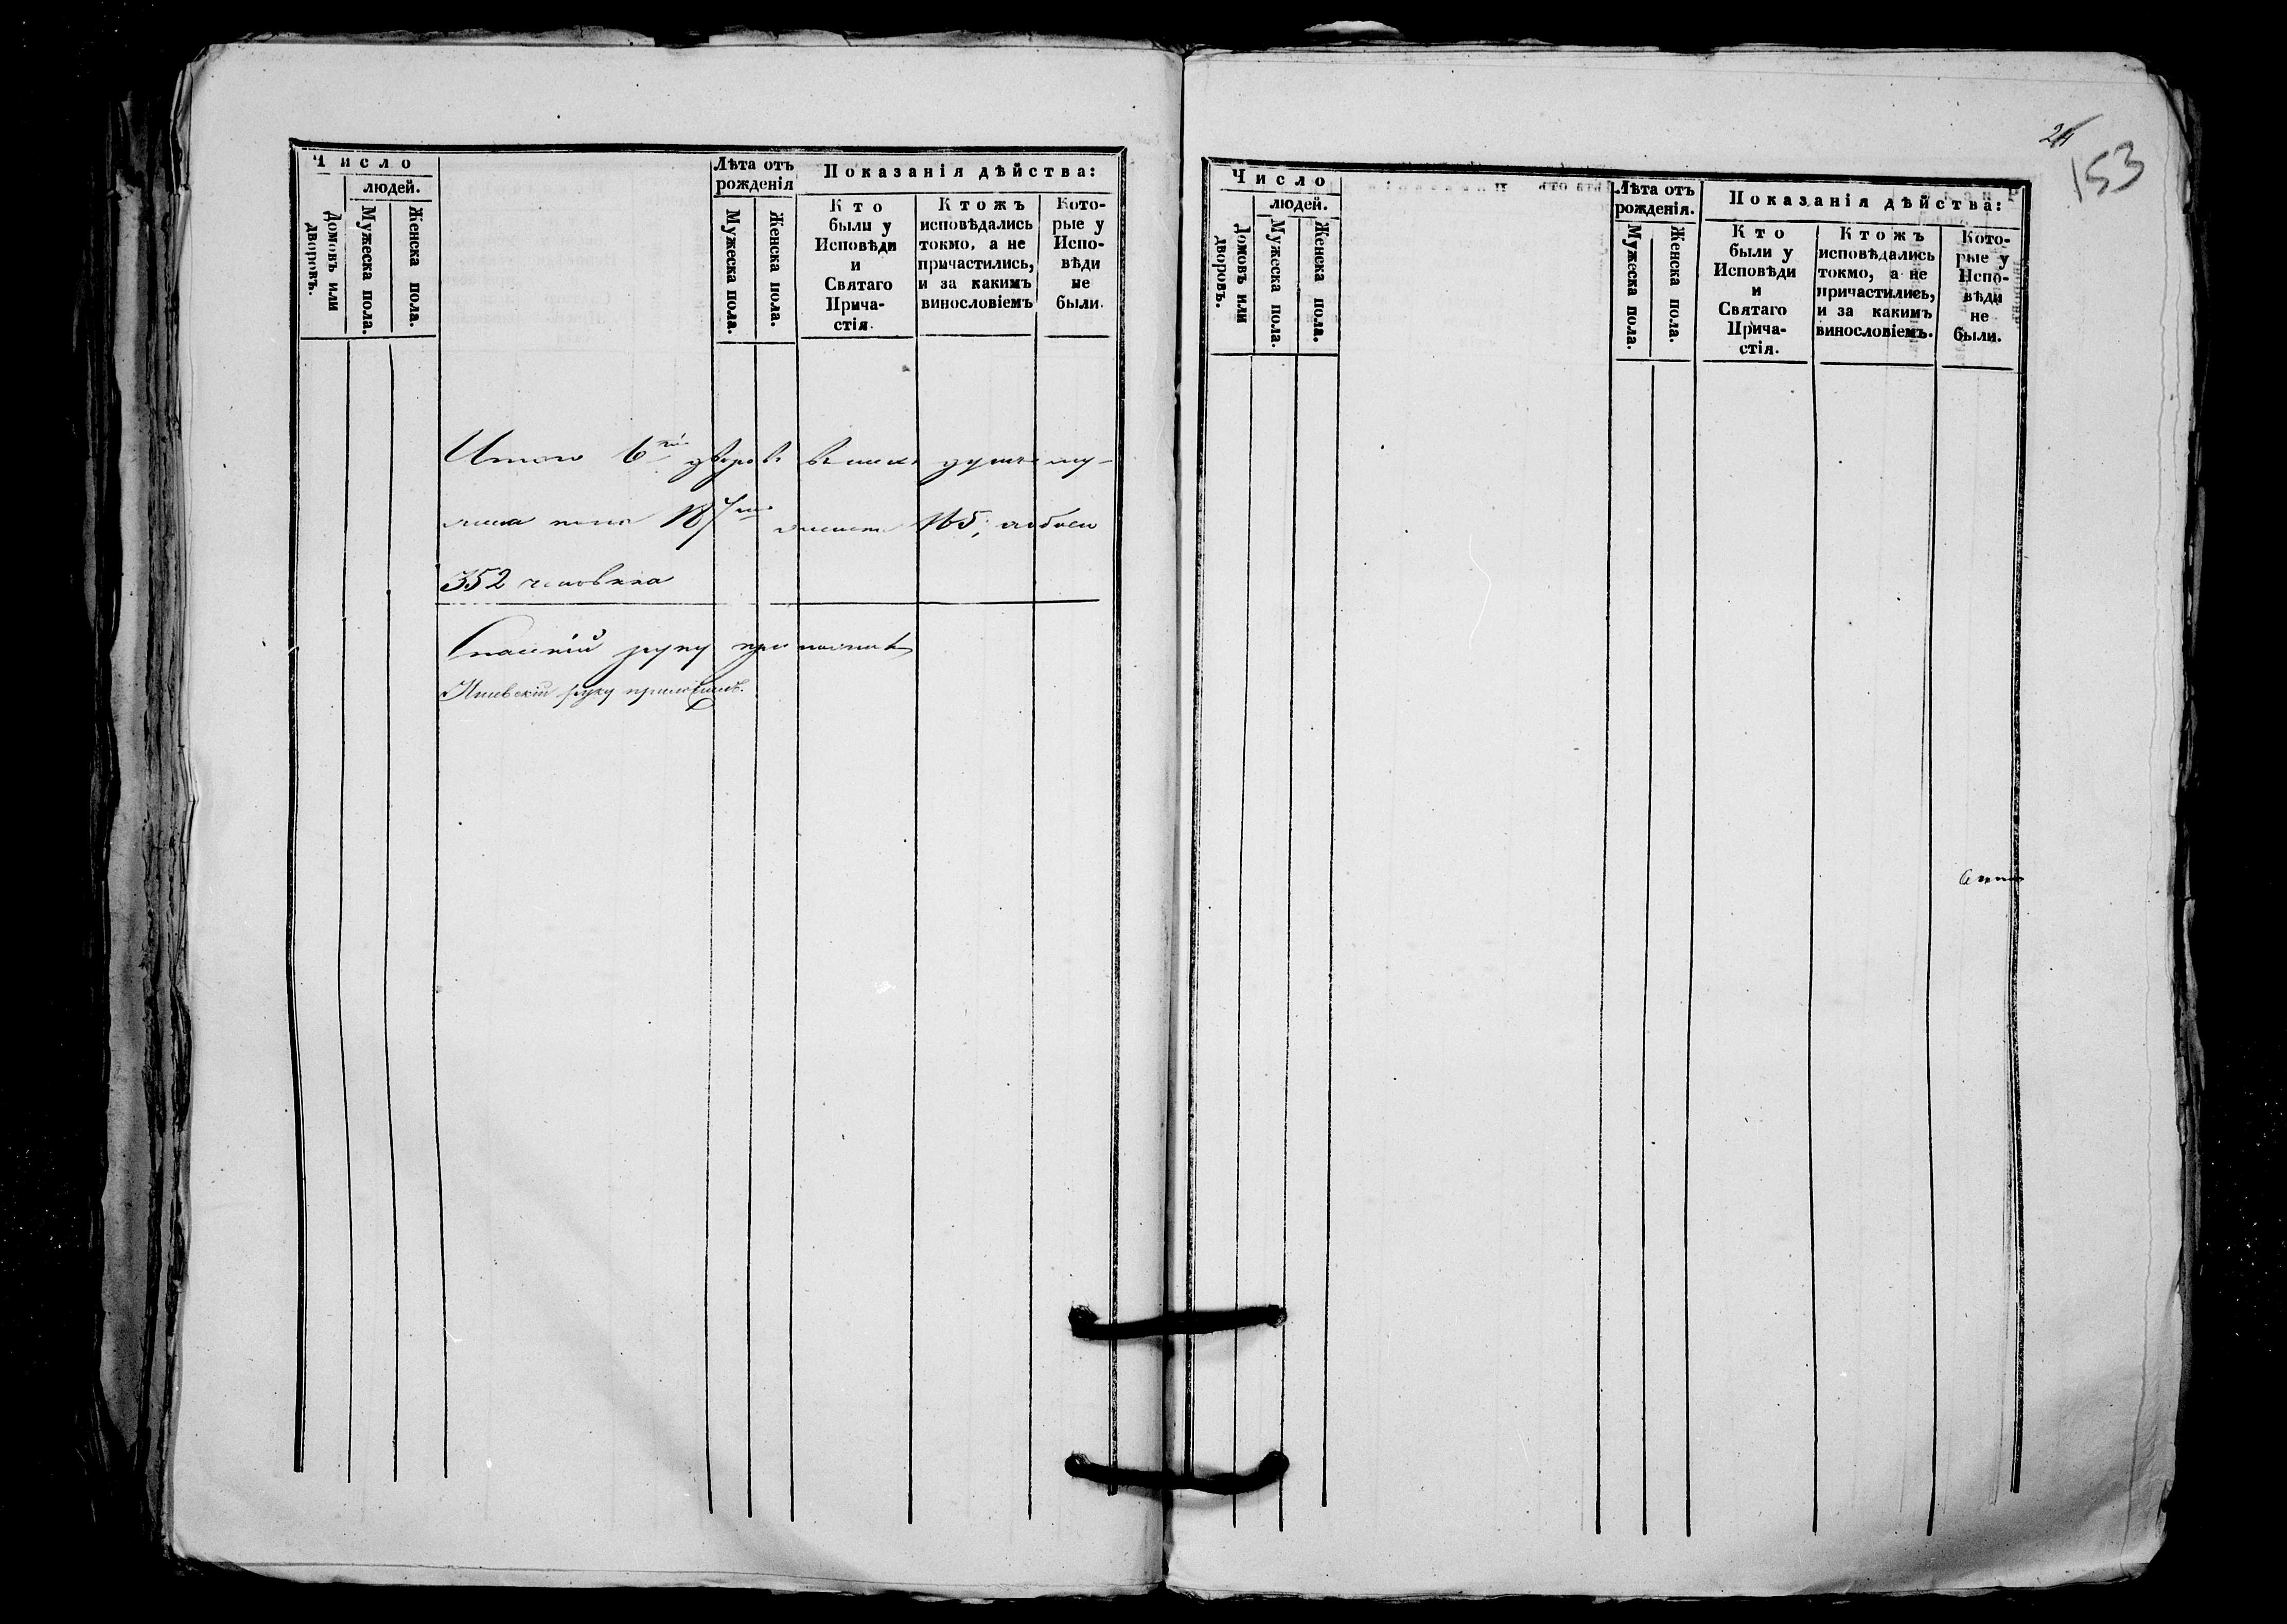 Число
людей.
Домовъ или дворовъ.
Мужеска пола.
Женска пола.
Лѣта отъ рожденія
Мужеска пола.
Женска пола.
Показанія дѣйства:
Кто
были у
Исповѣди
и
Святаго
Прича-
стія.
Ктожъ
исповѣдались
токмо, а не
причастились,
и за какимъ
винословіемъ
Кото-
рые у
Испо-
вѣди
не
были.
Итого 6ти дворовъ всѣхъ душъ му-
жеска пола 187мь женска 165, обоего
352 человѣка
Спасскій руку приложилъ
руку приложилъ.
24
153
Число
людей.
Домовъ или дворовъ.
Мужеска пола.
Женска пола.
Лѣта отъ
рожденія.
Мужеска пола.
Женска пола.
Показанія дѣйства:
Кто
были у
Исповѣди
и
Святаго
Прича-
стія.
Ктожъ
исповѣдались
токмо, а не
причастились,
и за какимъ
винословіемъ.
Кото-
рые у
Испо-
вѣди
не
были.